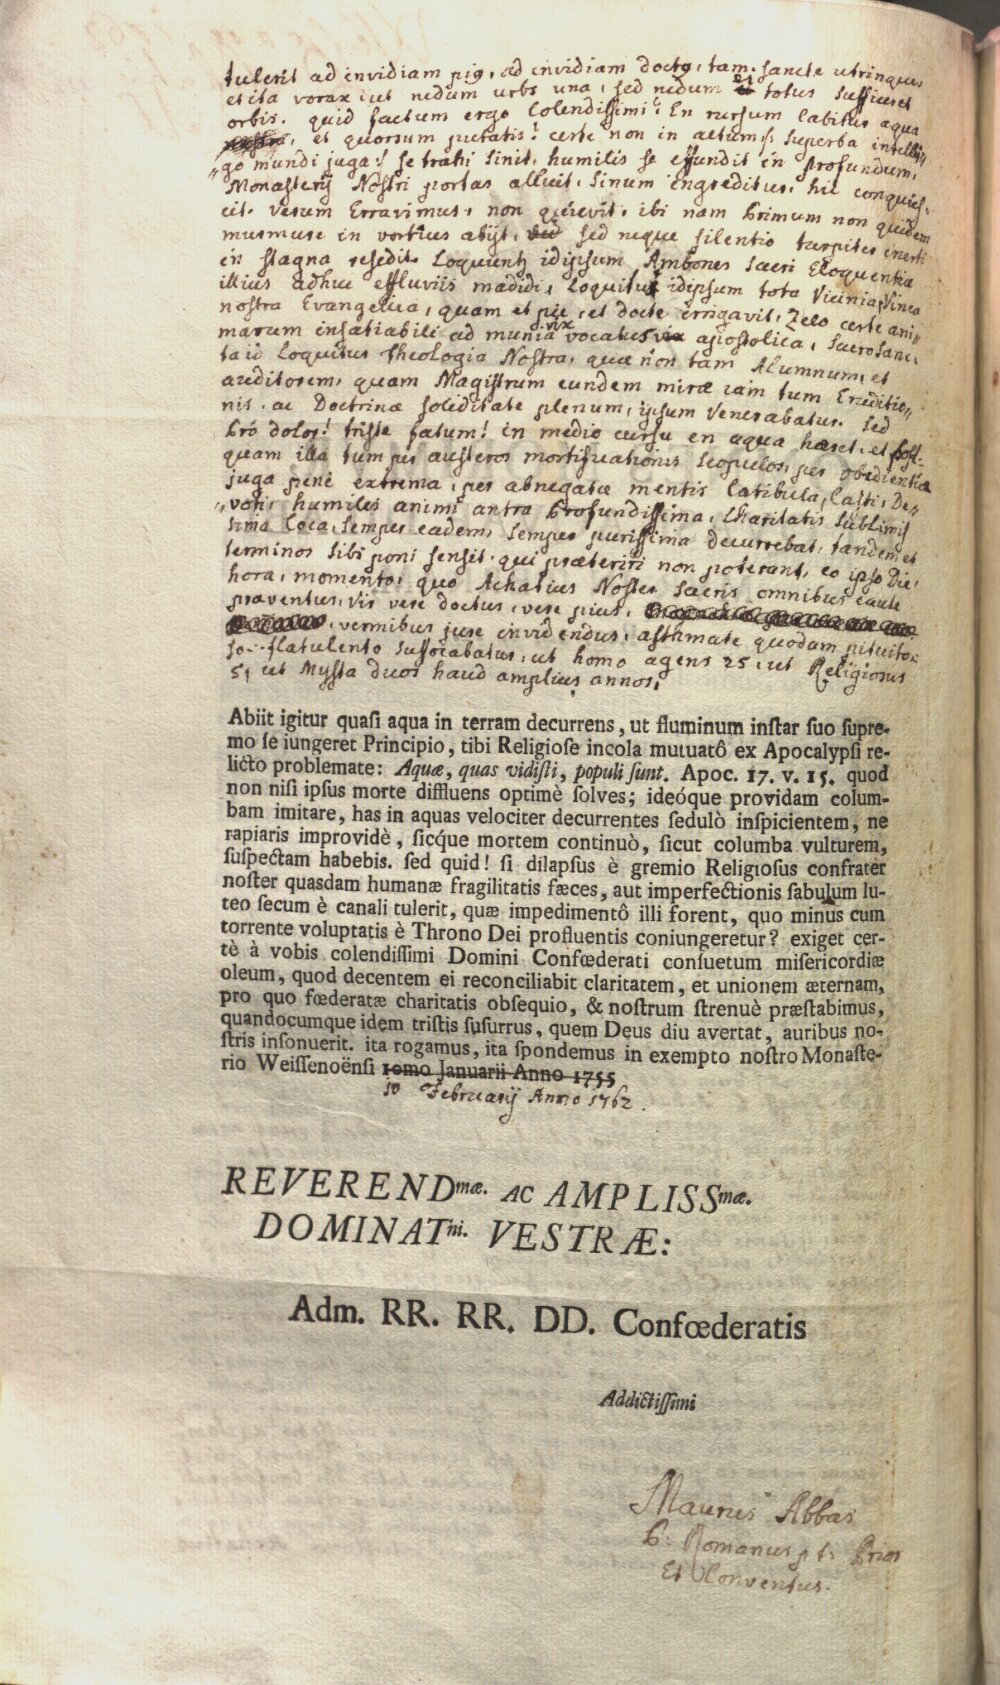 tulerit ad invidiam pijs, ad invidiam doctis, tam sancte utrinque,
et ita vorax, ut nedum urbs una, sed nedum ei totus sufficeret
orbis. quid factum ergo Colendissimi? En rursum labitur aqua
et quorsum putatis? certe non in altum,, superba intelli„
„go mundi juga: se trahi sinit, humilis se effundit in profundum,
Monasterij Nostri portas alluit, sinum ingreditur, hic conquies„
cit. Verum Erravimus, non quievit, ibi nam primum non quidem
murmure in vortices abijt, sed neque silentio turpiter inerti
in stagna resedit. Loquuntur idipsum Ambones sacri Eloquentia
illius adhuc effluviis madidi, loquitur idipsum tota Vicinia, Vinea
nostra Evangelica, quam et pie, et docte irrigavit, Zelo certe ani„
marum insatiabili ad munia vix vocatus apostolica, Sacrosanc„
ta id loquitur Theologia Nostra, quae non tam Alumnum, et
auditorem, quam Magistrum eundem mirae iam tum Eruditio„
nis, ac Doctrinae soliditate plenum, ipsum Venerabatur. Sed
Pro dolor! triste fatum! in medio cursu en aqua haeret, et post„
quam illa tum per austeros mortificationis scopulos, per obedientiae
juga pene extrema, per abnegatae mentis latibula, Casti, De„
„voti, humiles animi antra profundissima, Charitatis sublimis
sima loca, semper eadem, semper purissima decurrebat, tandem et
terminos sibi poni sensit, qui praeteriri non poterant, eo ipso Die,
hora, momento, quo Achatius Noster sacris omnibus caute
praeventus, vir vere doctus, vere pius,
vermibus jure invidendus, asthmate quodam pituito„
so-flatulento suffocabatur, ut homo agens 25, ut Religiosus
5, ut Mysta duos haud amplius annos.
Abiit igitur quasi aqua in terram decurrens, ut fluminum instar suo supre-
mo se iungeret Principio, tibi Religiose incola mutuatô ex Apocalypsi re-
licto problemate: Aquæ, quas vidisti, populi sunt. Apoc. 17. v. 15. quod
non nisi ipsus morte diffluens optimè solves; ideóque providam colum-
bam imitare, has in aquas velociter decurrentes sedulò inspicientem, ne
rapiaris improvidè, sicq́ue mortem continuò, sicut columba vulturem,
suspectam habebis. sed quid! si dilapsus è gremio Religiosus confrater
noster quasdam humanæ fragilitatis fæces, aut imperfectionis sabulum lu-
teo secum è canali tulerit, quæ impedimentô illi forent, quo minus cum
torrente voluptatis è Throno Dei profluentis coniungeretur? exiget cer-
tè à vobis colendissimi Domini Confœderati consuetum misericordiæ
oleum, quod decentem ei reconciliabit claritatem, et unionem æternam,
pro quo fœderatæ charitatis obsequio, & nostrum strenuè præstabimus,
quandocumque idem tristis susurrus, quem Deus diu avertat, auribus no-
stris insonuerit. ita rogamus, ita spondemus in exempto nostro Monaste-
rio Weissenoënsi 10mo Januarii Anno 1755
10 Februarij Anno 1762.
REVERENDmæ. AC AMPLISSmæ.
DOMINATni. VESTRÆ:
Adm. RR. RR. DD. Confœderatis
Addictissimi
Maurus Abbas
P: Romanus p. t. Prior
Et Conventus.